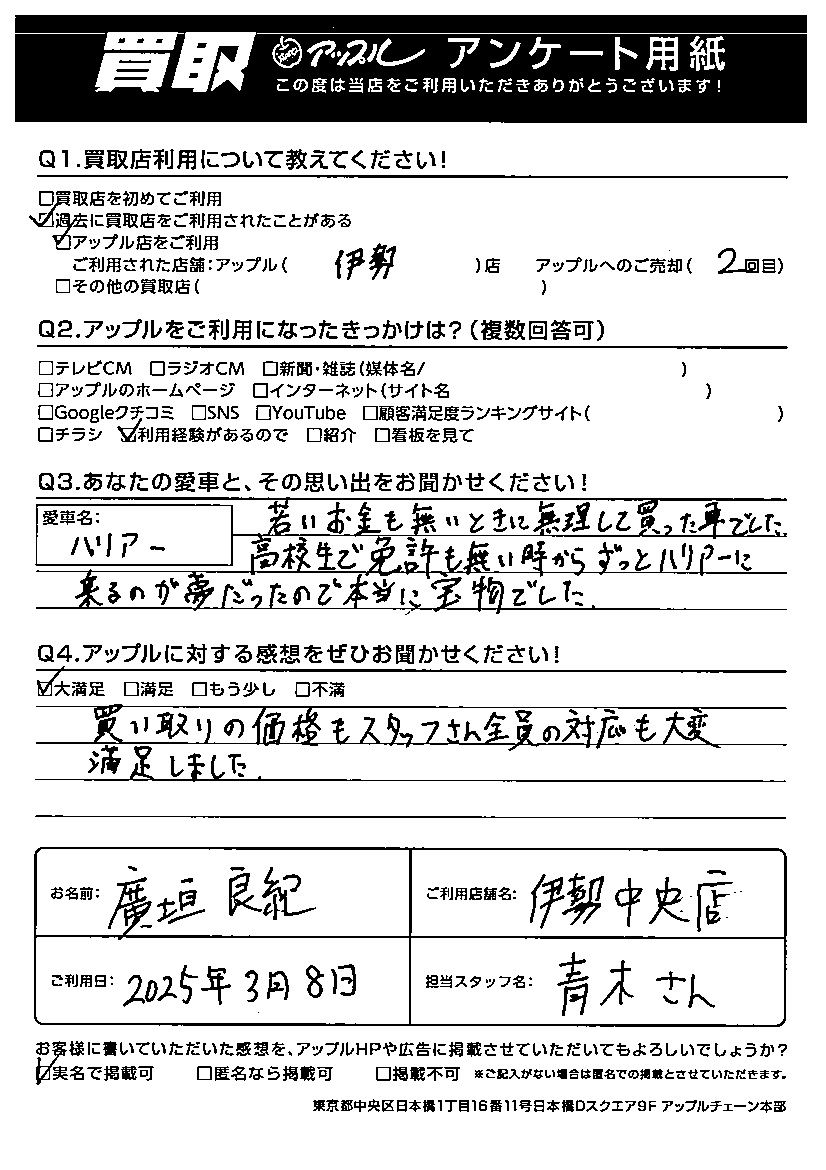 買取 アップル アンケート用紙
この度は当店をご利用いただきありがとうございます!
Q1.買取店利用について教えてください!
□買取店を初めてご利用
☑過去に買取店をご利用されたことがある
☑アップル店をご利用
ご利用された店舗:アップル( 伊勢 )店 アップルへのご売却( 2回目)
□その他の買取店( )
Q2.アップルをご利用になったきっかけは?(複数回答可)
□テレビCM □ラジオCM □新聞・雑誌(媒体名/ )
□アップルのホームページ □インターネット(サイト名 )
□Googleクチコミ □SNS □YouTube □顧客満足度ランキングサイト( )
□チラシ ☑利用経験があるので □紹介 □看板を見て
Q3.あなたの愛車と、その思い出をお聞かせください!
愛車名:
ハリアー
若いお金も無いときに無理して買った車でした。
高校生で免許も無い時からずっとハリアーに
来るのが夢だったので本当に宝物でした。
Q4.アップルに対する感想をぜひお聞かせください!
☑大満足 □満足 □もう少し □不満
買い取りの価格もスタッフさん全員の対応も大変
満足しました。
お名前: 廣垣 良紀 ご利用店舗名: 伊勢中央店
ご利用日: 2025年3月8日 担当スタッフ名: 青木さん
お客様に書いていただいた感想を、アップルHPや広告に掲載させていただいてもよろしいでしょうか?
☑実名で掲載可 □匿名なら掲載可 □掲載不可 ※ご記入がない場合は匿名での掲載とさせていただきます。
東京都中央区日本橋1丁目16番11号日本橋Dスクエア9F アップルチェーン本部